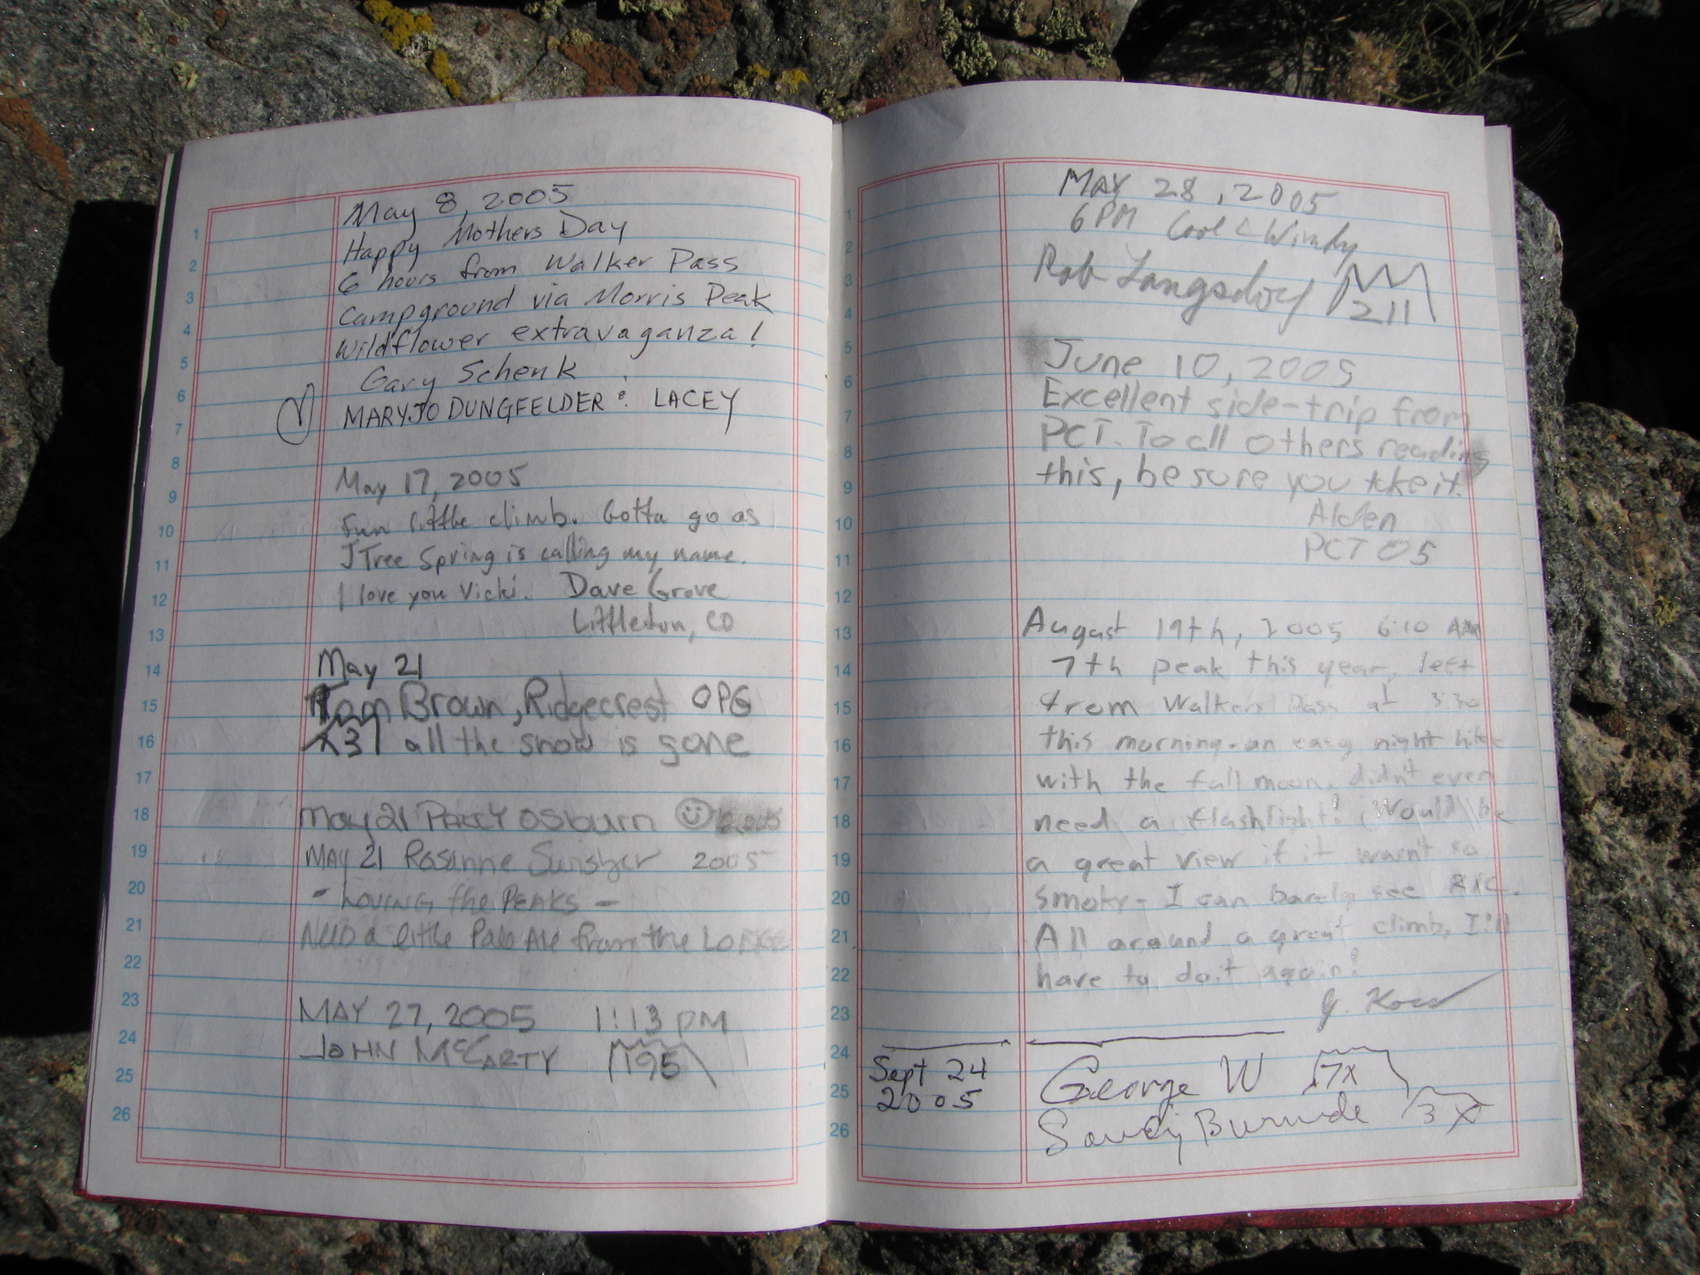 May 8, 2005
Happy Mothers Day
6 hours from Walker Pass
Campground via Morris Peak
Wildflower extravaganza!
Gary Schenk
MARYJO DUNGFELDER : LACEY
May 17, 2005
Fun little climb. Gotta go as
JTree Spring is calling my name.
I love you Vicki. Dave Grove
Littleton, CO
May 21
Tom Brown, Ridgecrest OPG
X37 all the snow is gone
May 21 Patty Osburn 2005
MAY 21 Rosanne 2005
- Loving the Peaks -
Need a little Pale Ale from the
MAY 27, 2005 1:13 PM
JOHN McCARTY 195
MAY 28, 2005
6 PM Cool & Windy
Rob Langsdorf 211
June 10, 2005
Excellent side-trip from
PCT. To all others reading
this, be sure you tke it.
Alden
PCT 05
August 19th, 2005 6:10 AM
7th peak this year, left
from Walkers Pass at 3:30
this morning - an easy night hike
with the full moon, didn't even
need a flashlight! Would be
a great view if it wasn't so
smoky - I can barely see
All around a great climb, I'll
have to do it again!
Sept 24
2005
George W 7x
Sandy Burnside 3x
1
2
3
4
5
6
7
8
9
10
11
12
13
14
15
16
17
18
19
20
21
22
23
24
25
26
1
2
3
4
5
6
7
8
9
10
11
12
13
14
15
16
17
18
19
20
21
22
23
24
25
26